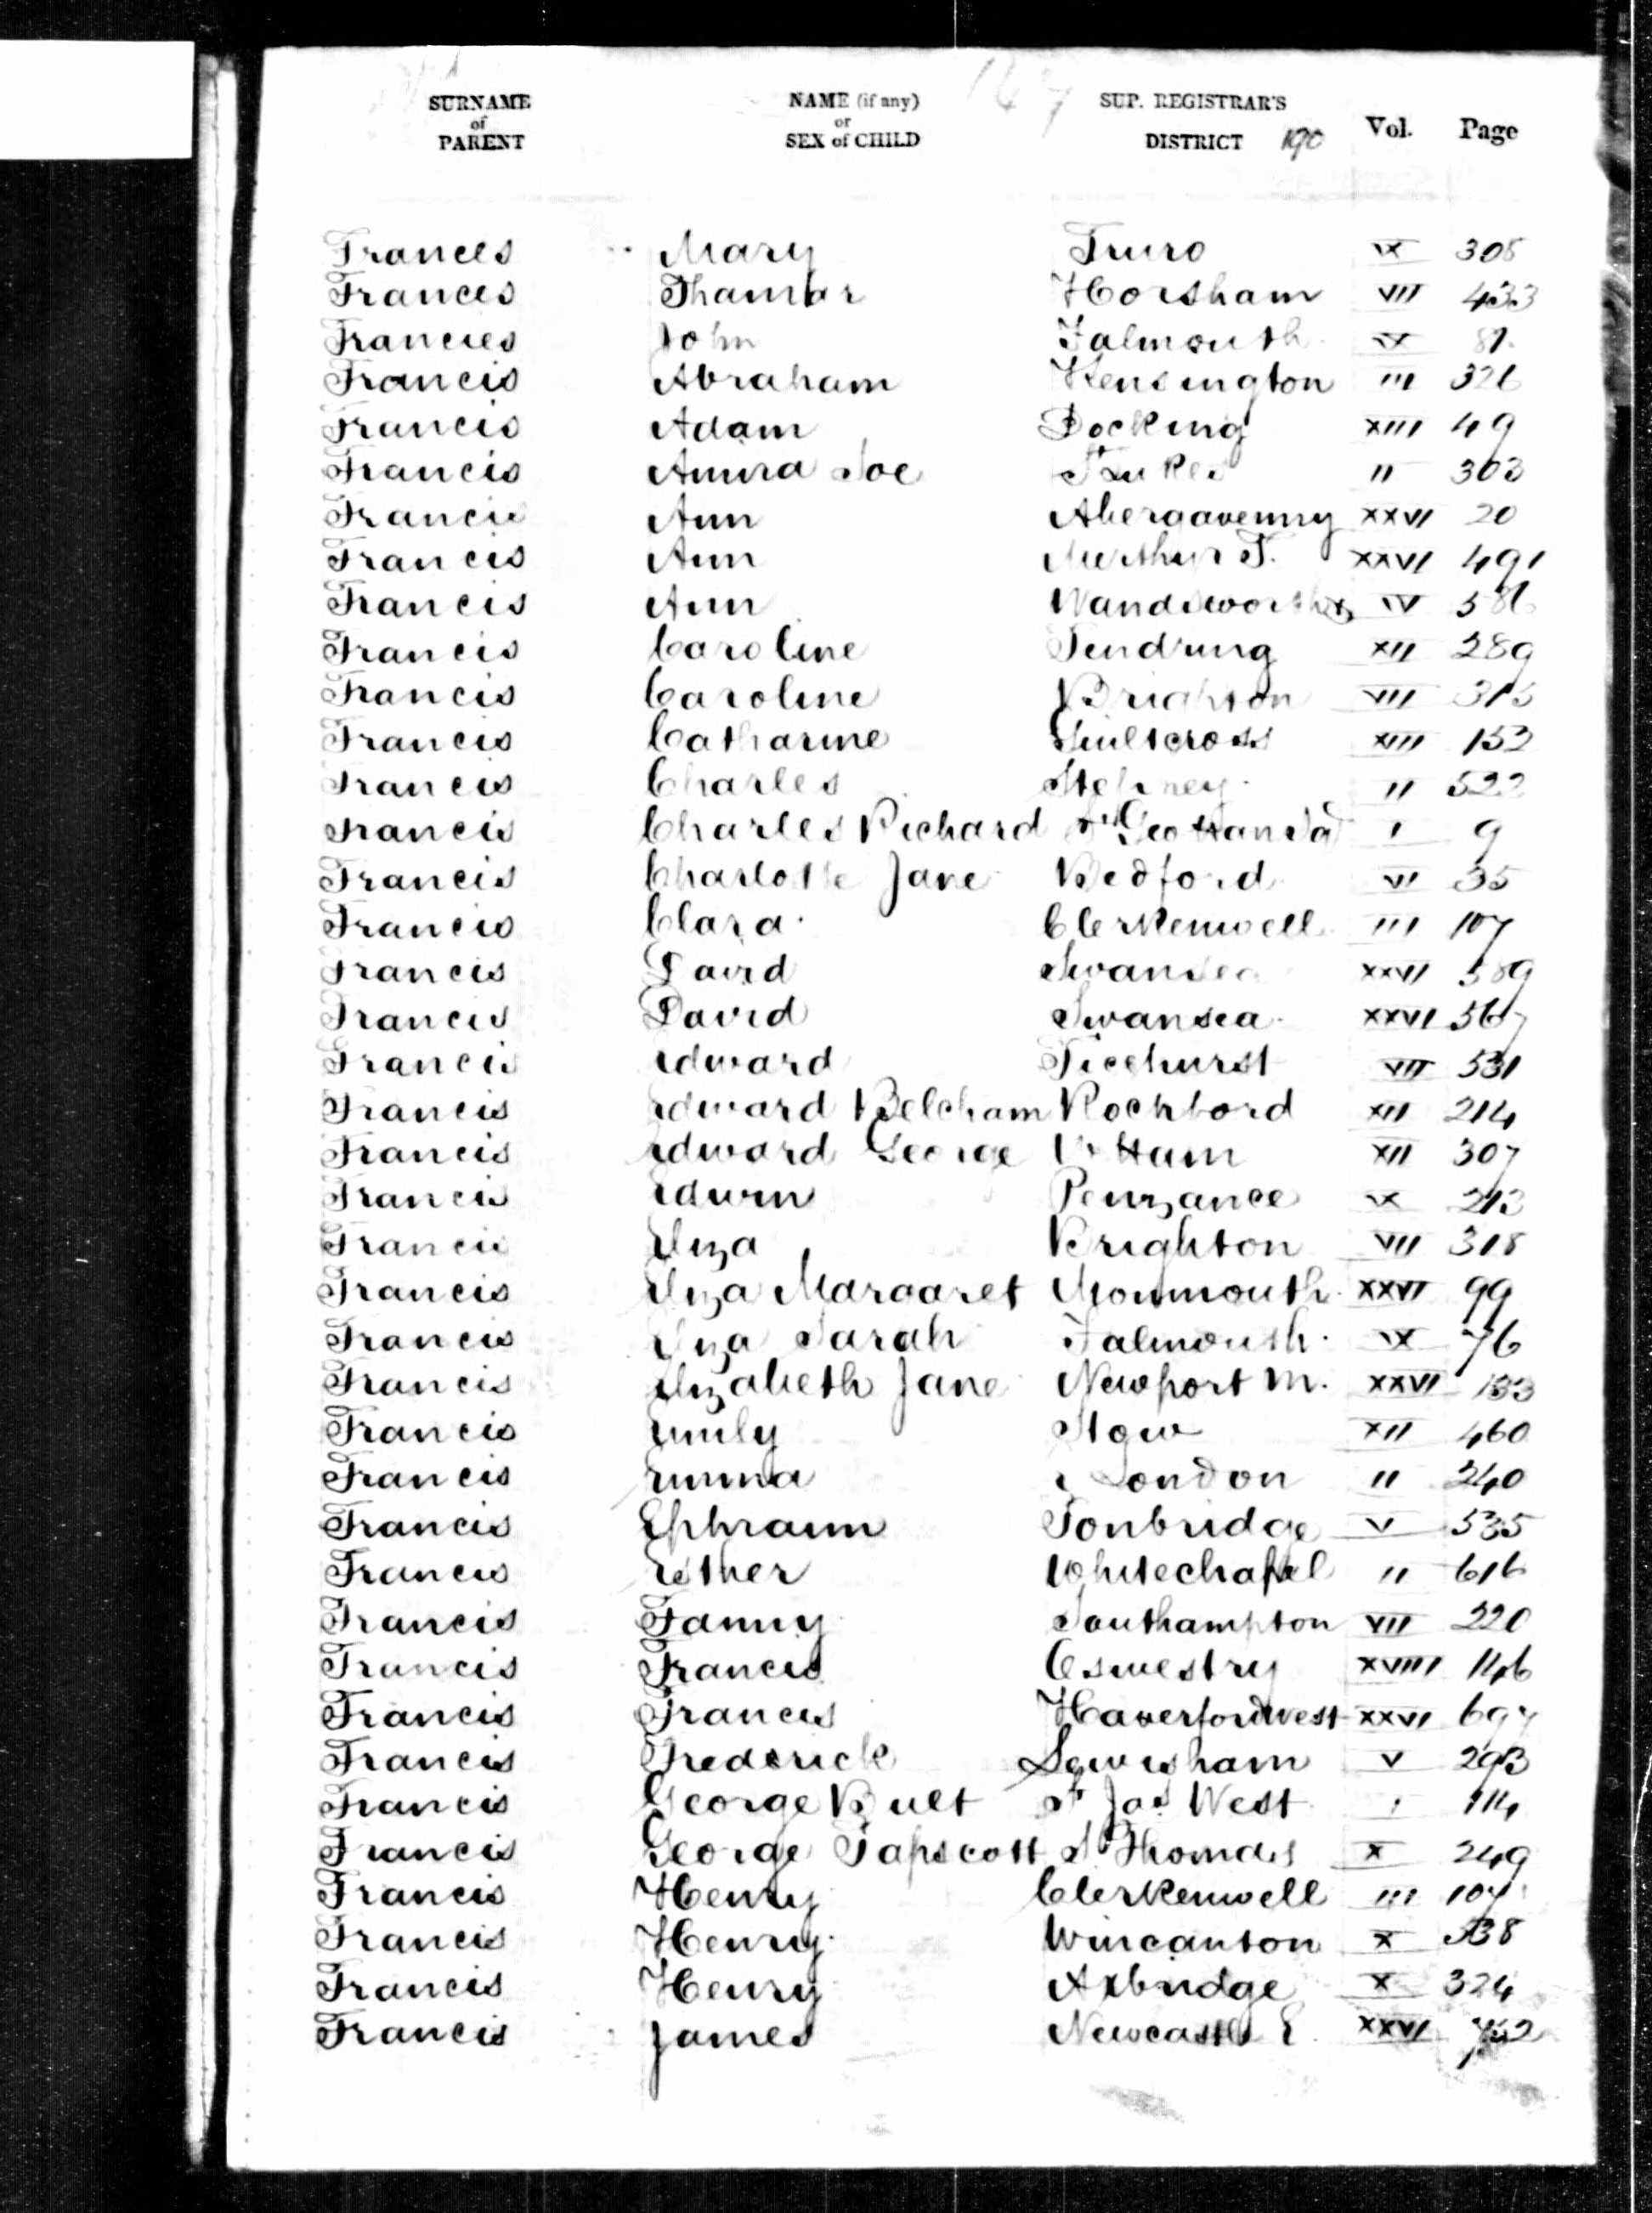 SURNAME of PARENT NAME (if any) or SEX of CHILD SUP. REGISTRAR'S DISTRICT 190 Vol. Page
Frances Mary Truro IX 308
Frances Thamar Horsham VII 433
Francies John Falmouth IX 81
Francis Abraham Kensington III 326
Francis Adam Docking XIII 49
Francis Amina Soe St Lukes II 303
Francis Ann Abergavenny XXVI 20
Francis Ann Merthyr T. XXVI 491
Francis Ann Wandsworth IV
Francis Caroline Tendring XII 289
Francis Caroline Brighton VII 315
Francis Catharine Guiltcross XIII 152
Francis Charles Stepney II 522
Francis Charles Richard St Geo Han Sq I 9
Francis Charlotte Jane Bedford VI 35
Francis Clara Clerkenwell III 107
Francis David Swansea XXVI 589
Francis David Swansea XXVI 567
Francis Edward Ticehurst VII 531
Francis Edward Belcham Rochford XII 214
Francis Edward George W. Ham XII 307
Francis Edwin Penzance IX 213
Francis Eliza Brighton VII 318
Francis Eliza Margaret Monmouth XXVI 99
Francis Eliza Sarah Falmouth IX 76
Francis Elizabeth Jane Newport M. XXVI 133
Francis Emily Stow XII 460
Francis Emma London II 240
Francis Ephraim Tonbridge V 535
Francis Esther Whitechapel II 616
Francis Fanny Southampton VII 220
Francis Francis Oswestry XVIII 146
Francis Francis Haverfordwest XXVI 697
Francis Frederick Lewisham V 293
Francis George Bult St Jas West I 114
Francis George Tapscott St Thomas X 249
Francis Henry Clerkenwell III 107
Francis Henry Wincanton X 538
Francis Henry Axbridge X 324
Francis James Newcastle E. XXVI